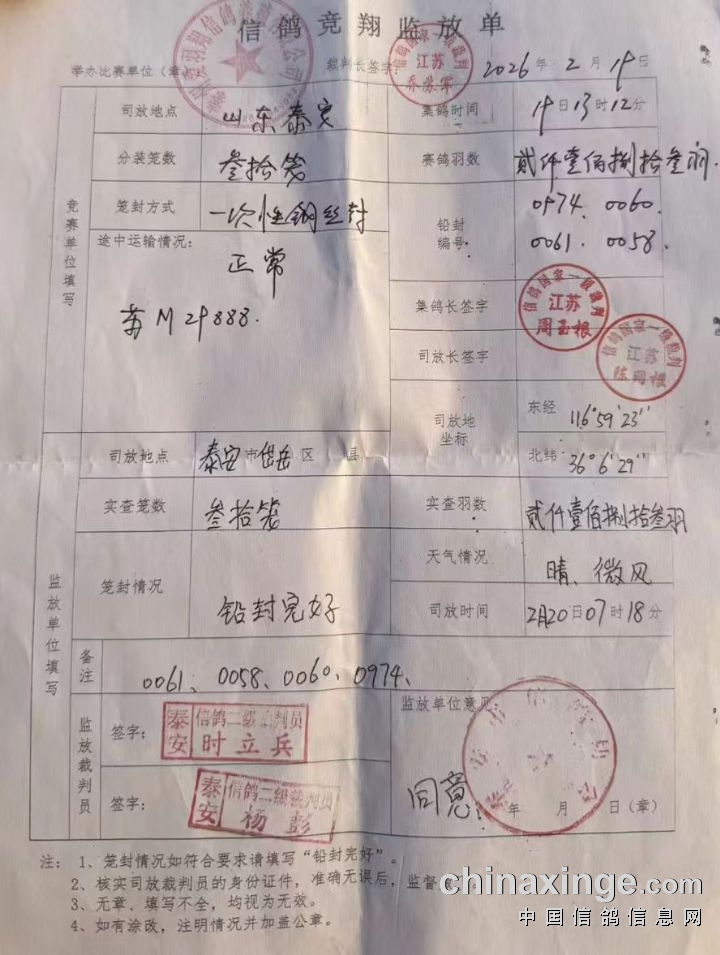 信鸽竞翔监放单
举办比赛单位（章）： 裁判长签字： 2026年2月19日
江苏
乔苏军
竞赛单位填写
司放地点 山东泰安 集鸽时间 19日13时12分
分装笼数 叁拾笼 赛鸽羽数 贰仟壹佰捌拾叁羽.
笼封方式 一次性钢丝封 铅封编号 0974. 0060.
0061. 0058.
途中运输情况： 正常
苏M29888.
集鸽长签字 信鸽国家一级裁判 江苏 周玉根
司放长签字 信鸽国家一级裁判 江苏 陈网根
司放地坐标 东经 116°59′23″
北纬 36°6′29″
监放单位填写
司放地点 泰安市岱岳区 县
实查笼数 叁拾笼 实查羽数 贰仟壹佰捌拾叁羽
笼封情况 铅封完好 天气情况 晴、微风
司放时间 2月20日07时18分
备注 0061、0058、0060、0974、
监放裁判员
签字： 泰安 信鸽二级裁判员 时立兵
签字： 泰安 信鸽二级裁判员 杨彭
监放单位意见
同意
年 月 日（章）
注： 1、笼封情况如符合要求请填写“铅封完好”。
2、核实司放裁判员的身份证件，准确无误后，监督
3、无章、填写不全，均视为无效。
4、如有涂改，注明情况并加盖公章。
chinaxinge.com
中国信鸽信息网